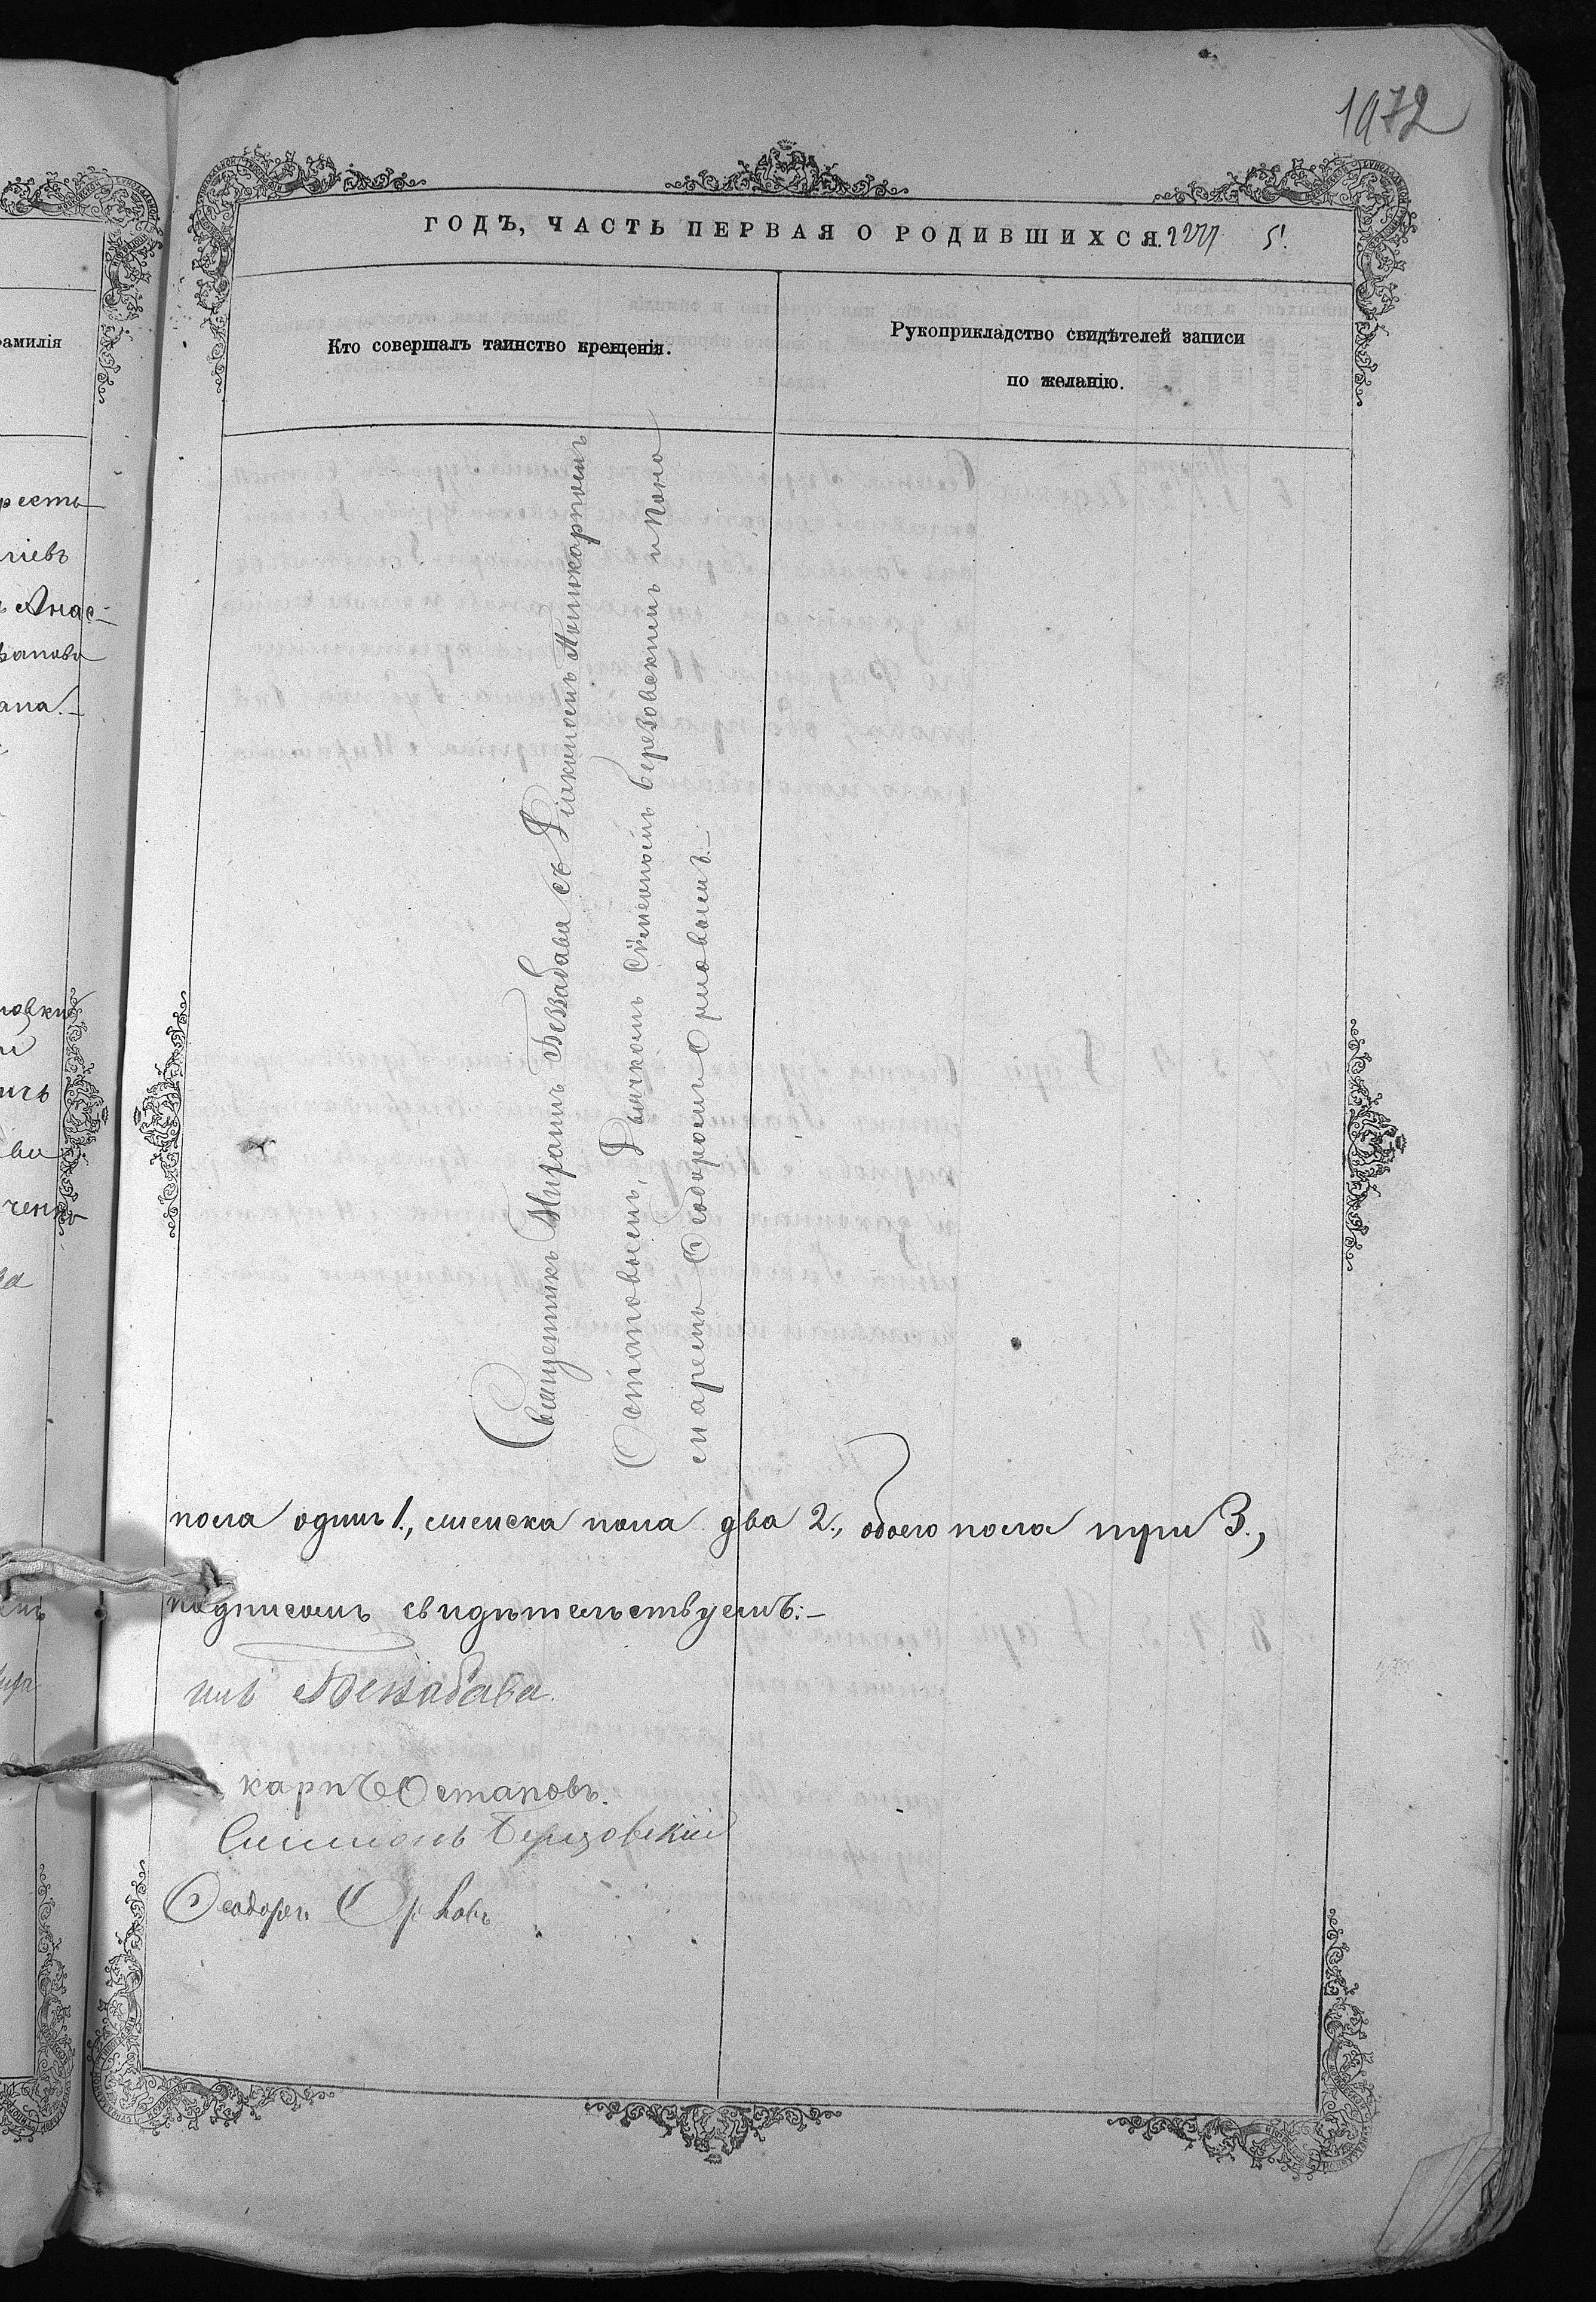 1972
ГОДЪ, ЧАСТЬ ПЕРВАЯ О РОДИВШИХСЯ. 5.
Кто совершалъ таинство крещенія.
Рукоприкладство свидѣтелей записи
по желанію.
Священникъ Миронъ Беззабава съ Діакономъ Поликарпомъ
Остаповымъ, Дьячкомъ Симеономъ Березовскимъ и Поно
маремъ Ѳеодоромъ Орловымъ.—
пола одинъ 1., женска пола два 2., обоего пола три 3.,
подписомъ свидѣтельствуемъ:—
нъ Беззабава.
карпъ Остаповъ.
Симеонъ Березовскій
Ѳеодоръ Орловъ
амилія
ресть
ліевъ
Анас-
фанова
ана.—